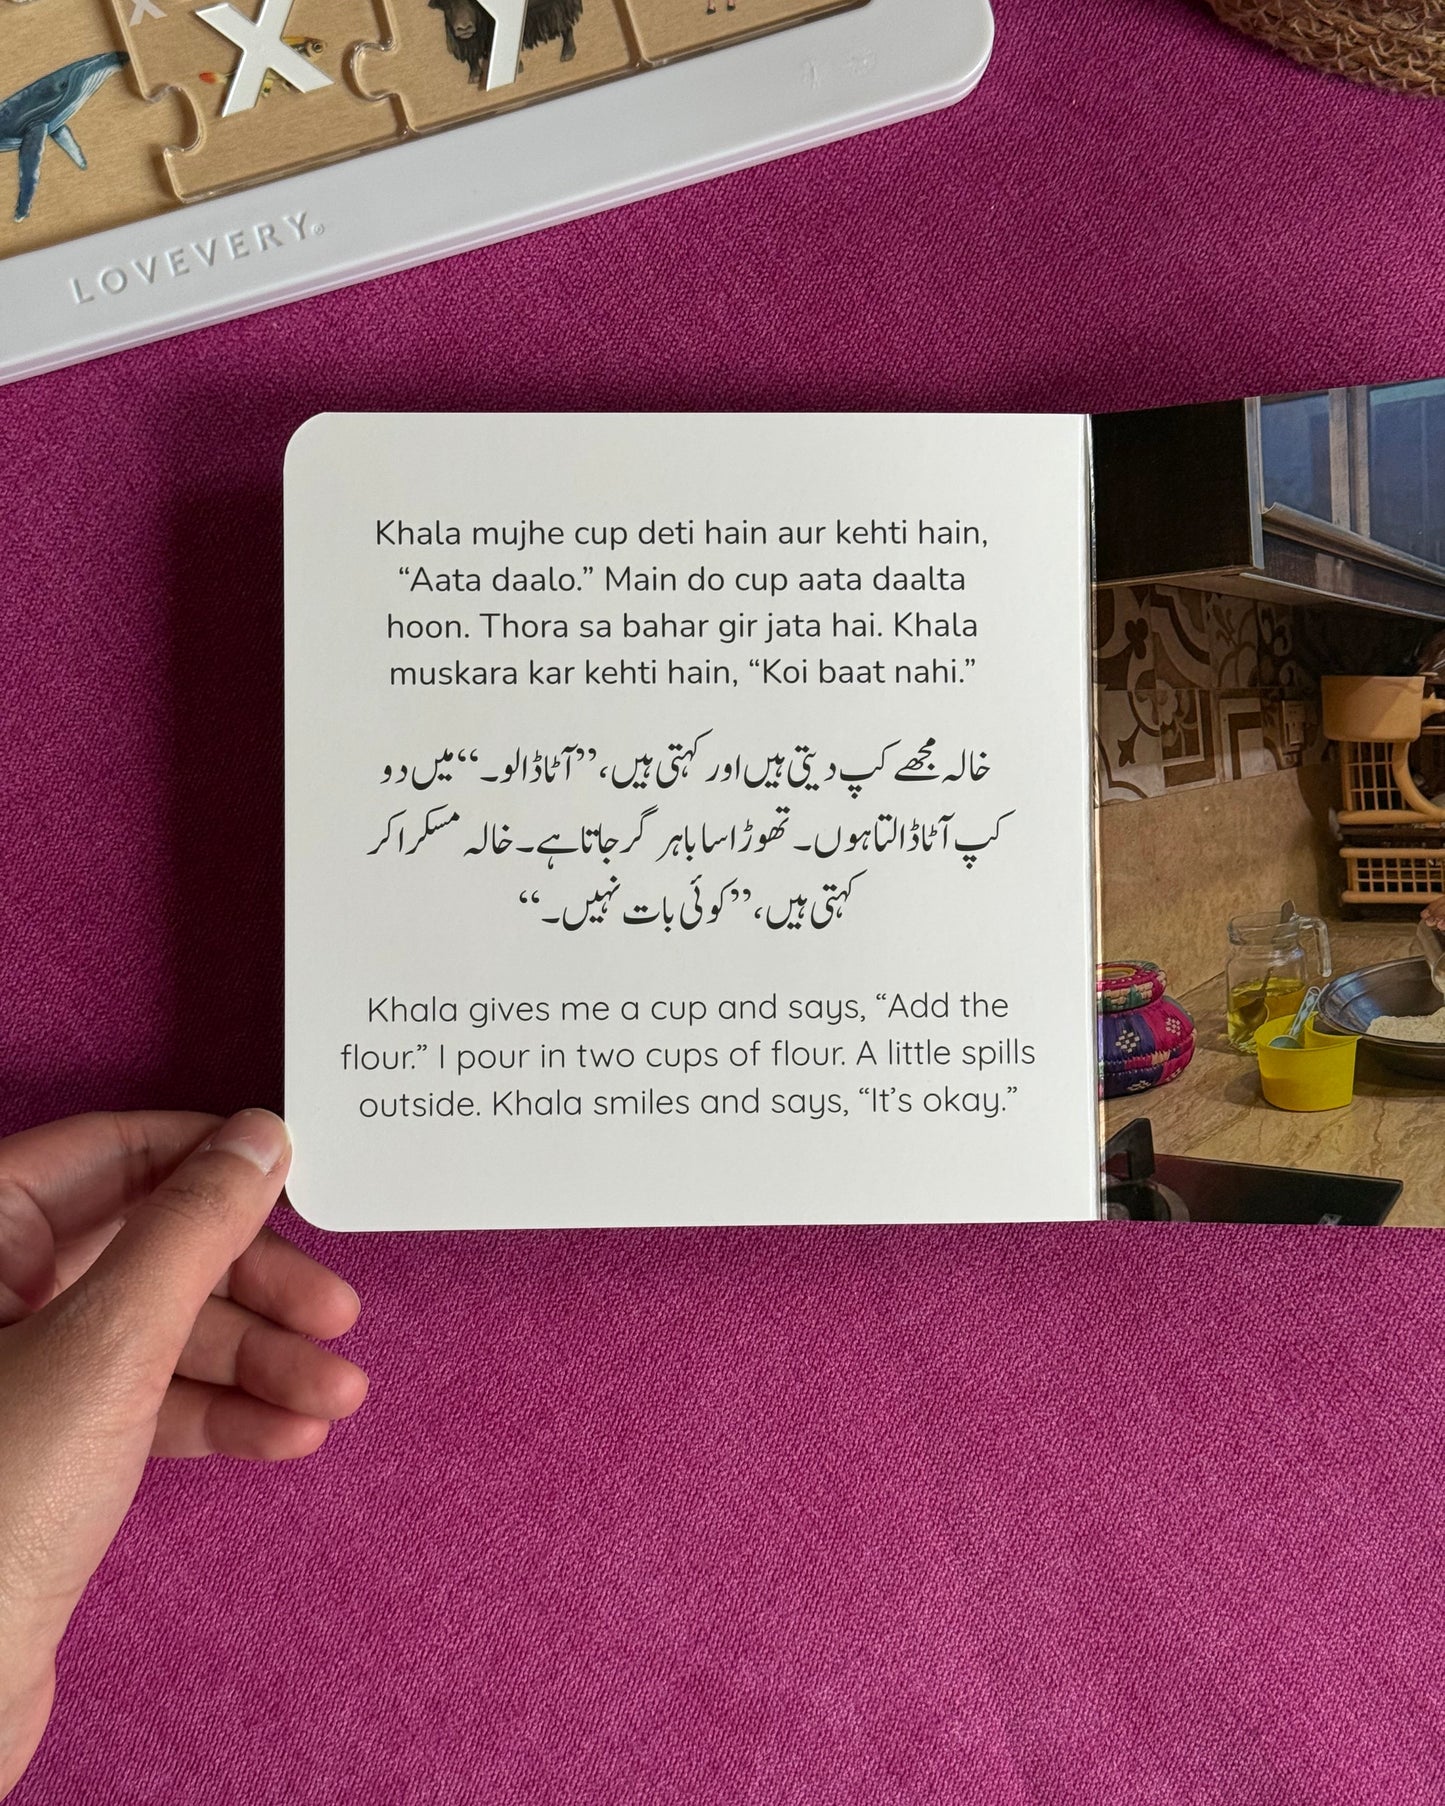 X
Y
LOVEVERY®
Khala mujhe cup deti hain aur kehti hain,
“Aata daalo.” Main do cup aata daalta
hoon. Thora sa bahar gir jata hai. Khala
muskara kar kehti hain, “Koi baat nahi.”
خالہ مجھے کپ دیتی ہیں اور کہتی ہیں، ”آٹا ڈالو۔“ میں دو
کپ آٹا ڈالتا ہوں۔ تھوڑا سا باہر گر جاتا ہے۔ خالہ مسکرا کر
کہتی ہیں، ”کوئی بات نہیں۔“
Khala gives me a cup and says, “Add the
flour.” I pour in two cups of flour. A little spills
outside. Khala smiles and says, “It’s okay.”